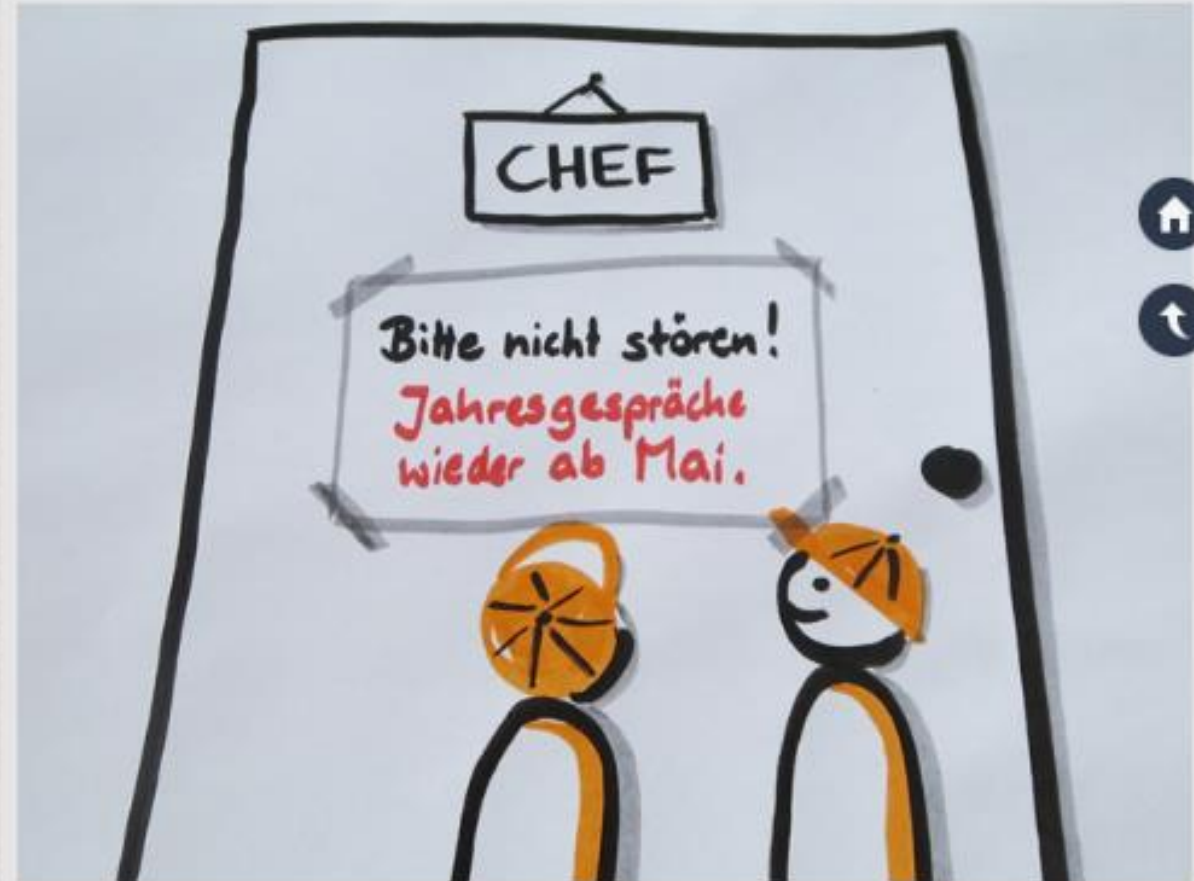 CHEF
Bitte nicht stören!
Jahresgespräche
wieder ab Mai.